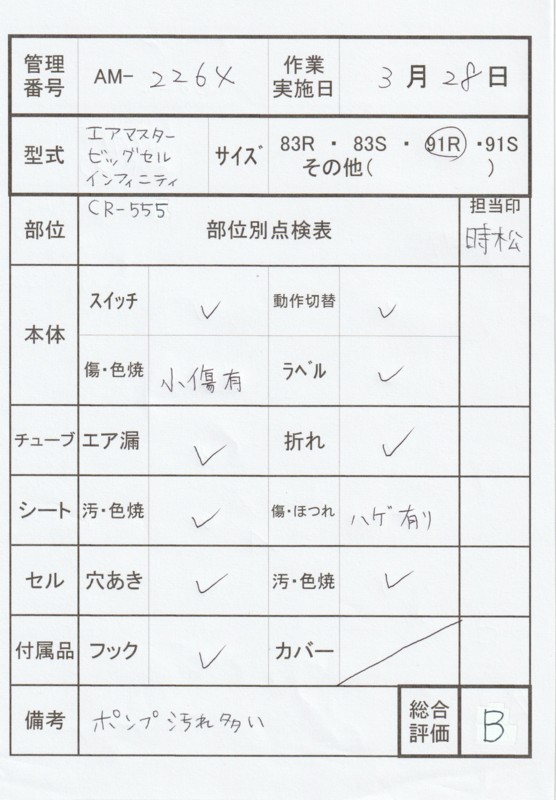 管理番号 AM- 2264 作業実施日 3月28日
型式 エアマスター ビッグセル インフィニティ サイズ 83R ・ 83S ・ 91R ・ 91S その他( )
CR-555
部位 部位別点検表 担当印 時松
本体 スイッチ ✓ 動作切替 ✓
傷・色焼 小傷有 ラベル ✓
チューブ エア漏 ✓ 折れ ✓
シート 汚・色焼 ✓ 傷・ほつれ ハゲ有り
セル 穴あき ✓ 汚・色焼 ✓
付属品 フック ✓ カバー
備考 ポンプ汚れ多い 総合評価 B